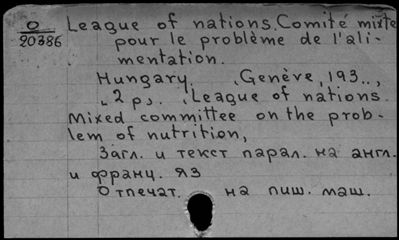 О
20386
League of nations. Comité mixte
pour le problème de l'ali-
mentation.
Hungary. Genève, 193..,
2 p. League of nations.
Mixed committee on the prob-
lem of nutrition,
Загл. и текст парал. на англ.
и франц. яз
Отпечат. на пиш. маш.